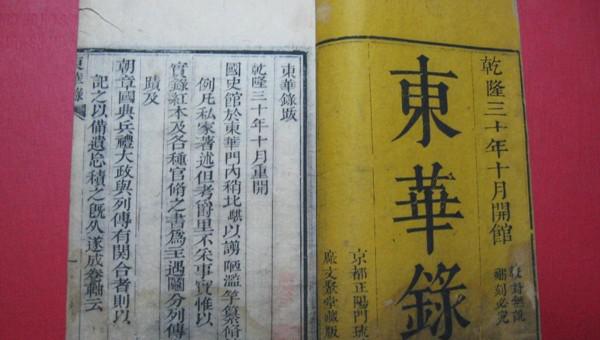 乾隆三十年十月開館
東華錄
翻刻必究
京都正陽門琉
廠文聚堂藏版
東華錄跋
乾隆三十年十月重開
國史館於東華門內稍北騏以謭陋濫竽纂脩
例凡私家著述但考爵里不采事實惟以
實錄紅本及各種官脩之書爲主遇鬮分列傳
蹟及
朝章國典兵禮大政與列傳有関合者則以
記之以備遺忘積之既久遂成卷軸云
東華錄